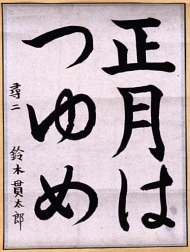 正月は
つゆめ
尋二 鈴木貫太郎